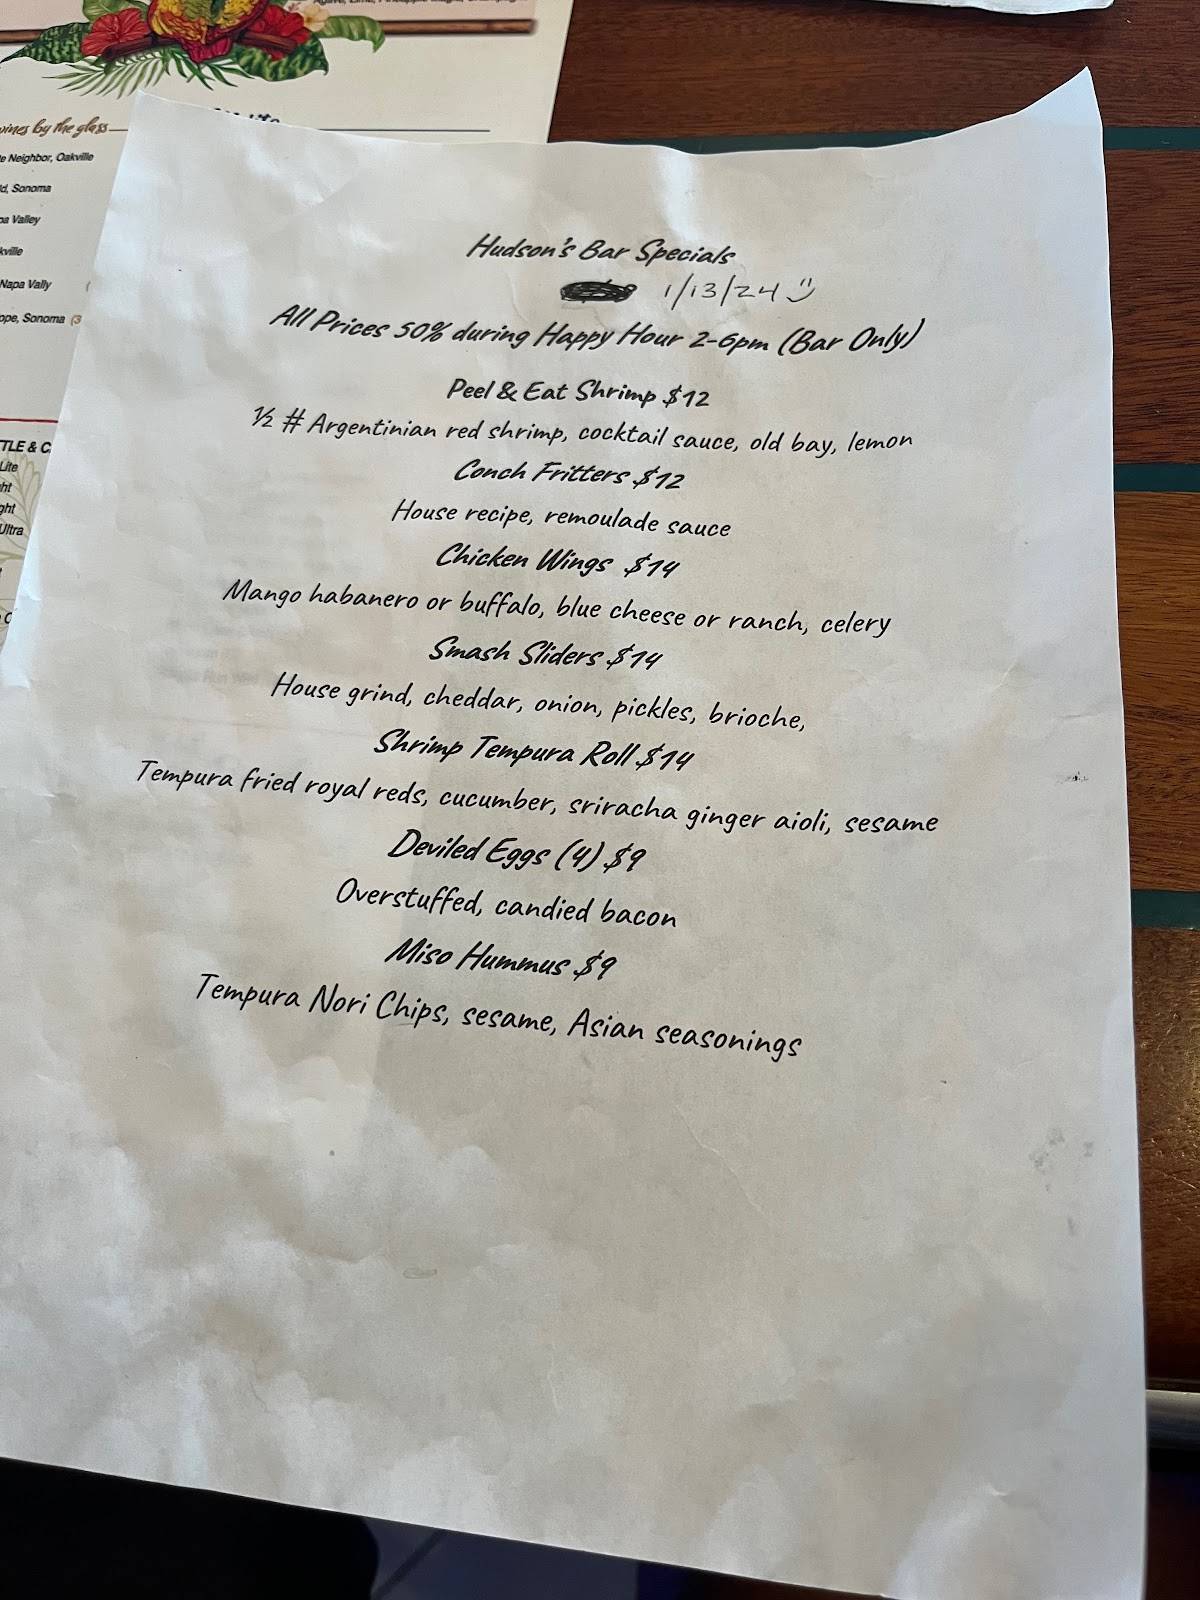 wines by the glass
Neighbor, Oakville
Sonoma
Valley
Napa Vally
Sonoma (3
Lite
Ultra
Hudson's Bar Specials
1/13/24
All Prices 50% during Happy Hour 2-6pm (Bar Only)
Peel & Eat Shrimp $12
½ # Argentinian red shrimp, cocktail sauce, old bay, lemon
Conch Fritters $12
House recipe, remoulade sauce
Chicken Wings $14
Mango habanero or buffalo, blue cheese or ranch, celery
Smash Sliders $14
House grind, cheddar, onion, pickles, brioche,
Shrimp Tempura Roll $14
Tempura fried royal reds, cucumber, sriracha ginger aioli, sesame
Deviled Eggs (4) $9
Overstuffed, candied bacon
Miso Hummus $9
Tempura Nori Chips, sesame, Asian seasonings